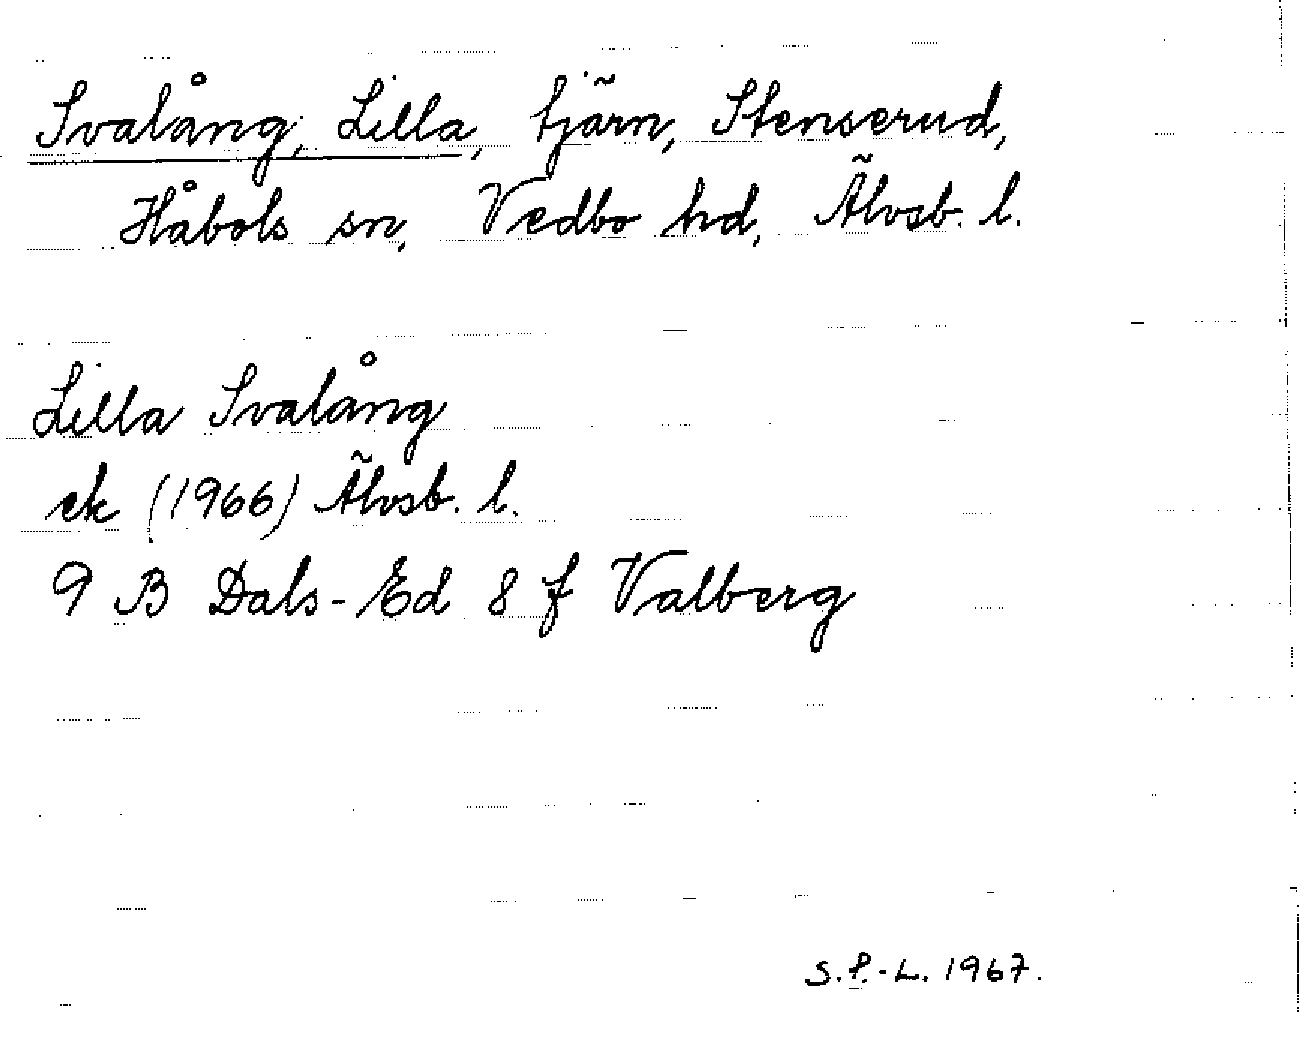 Svalång, Lilla, tjärn, Stenserud,
Håbols sn, Vedbo hd, Älvsb. l.
Lilla Svalång
ek (1966) Älvsb. l.
9 B Dals-Ed 8 f Valberg
S.P.-L. 1967.